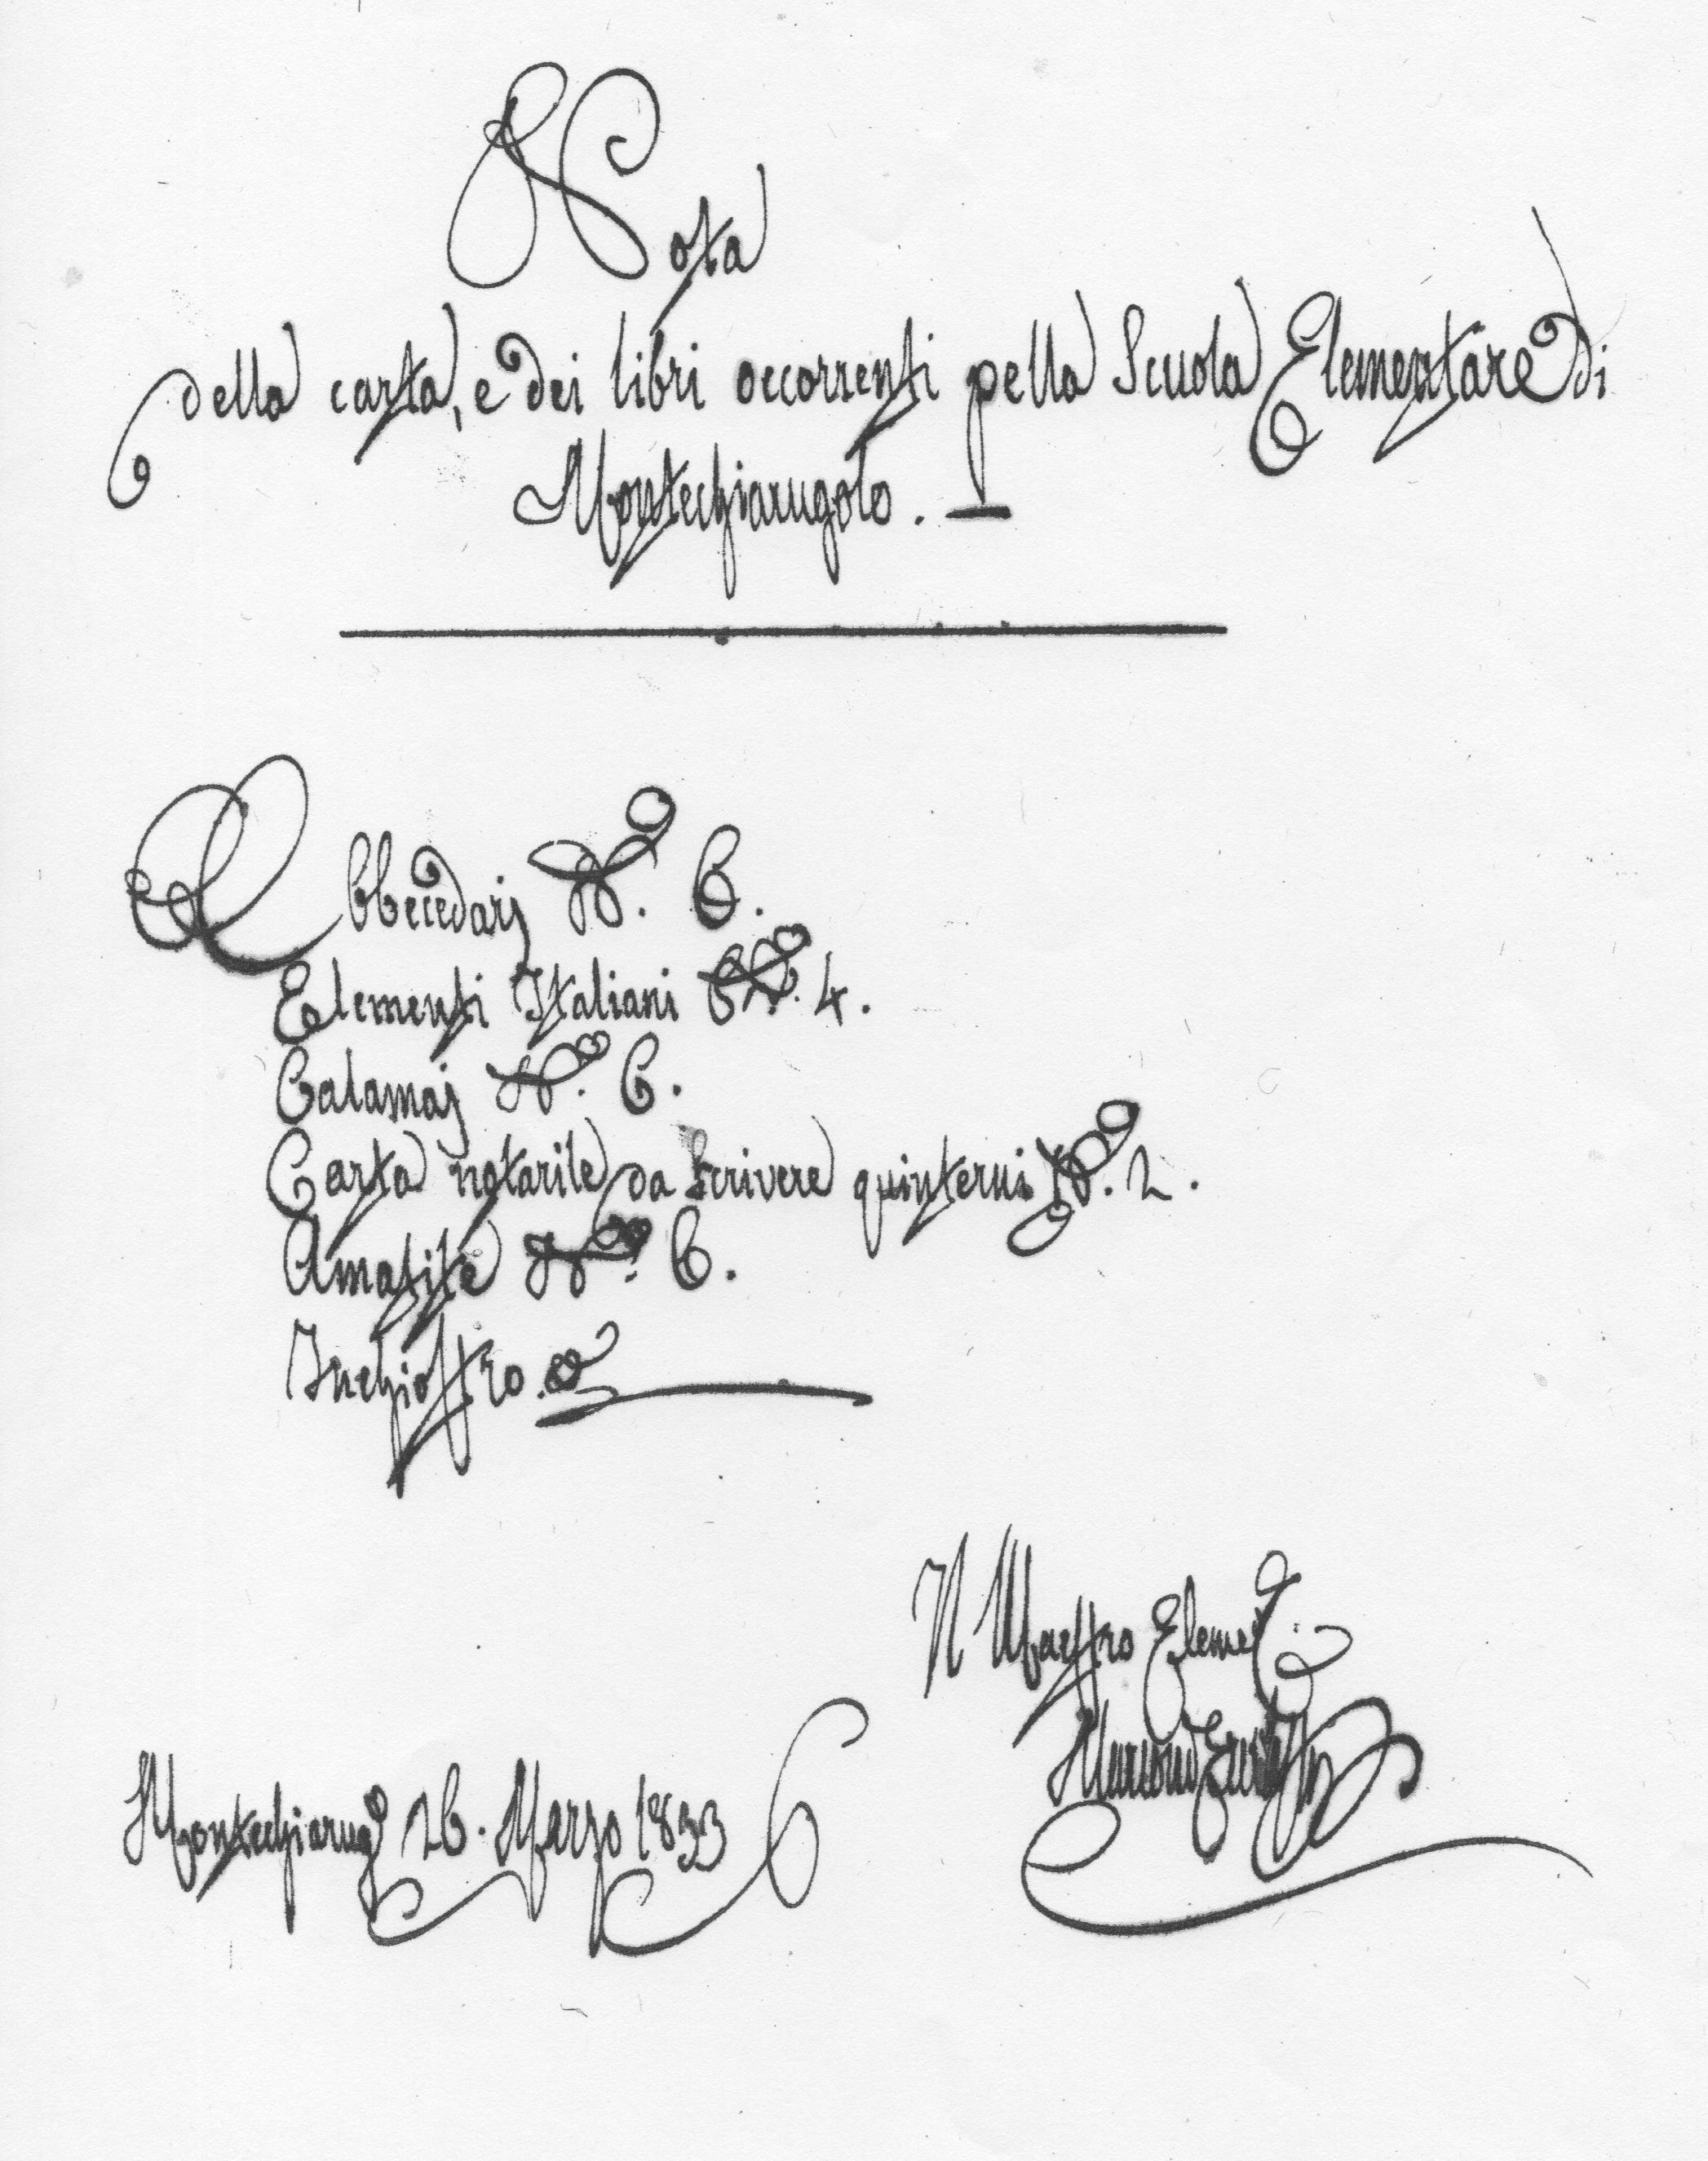 Nota
della carta, e dei libri occorrenti pella Scuola Elementare di
Montechiarugolo. —
Abbecedarj N.° 6.
Elementi Italiani N.° 4.
Calamaj N.° 6.
Carta notarile da scrivere quinterni N.° 2.
Amatite N.° 6.
Inchiostro.
Il Maestro Element.
Montechiarug.° 26. Marzo 1833